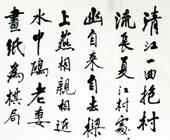 清江一曲抱村
流長夏江村事
幽自来自去樑
上燕相親相近
水中鷗老妻
畫紙為棋局